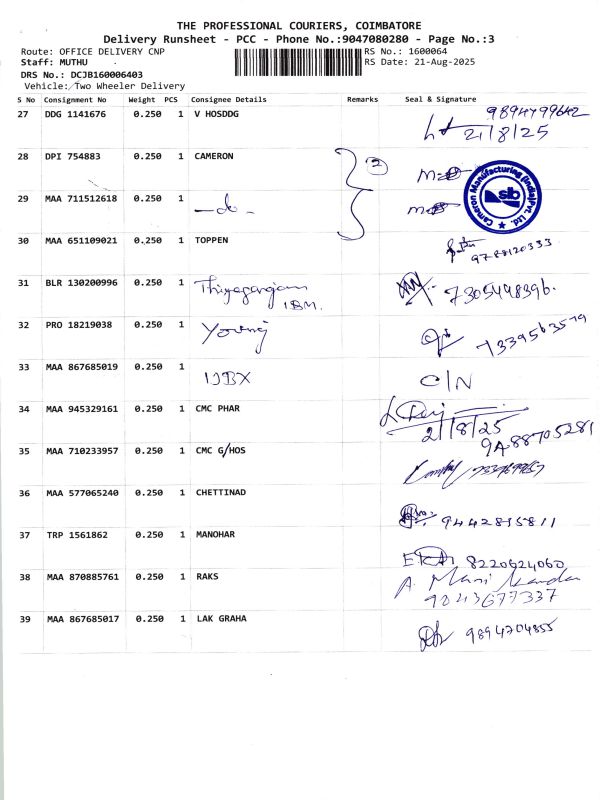 THE PROFESSIONAL COURIERS, COIMBATORE
Delivery Runsheet - PCC - Phone No.:9047080280 - Page No.:3
Route: OFFICE DELIVERY CNP RS No.: 1600064
Staff: MUTHU RS Date: 21-Aug-2025
DRS No.: DCJB160006403
Vehicle:/Two Wheeler Delivery
S No Consignment No Weight PCS Consignee Details Remarks Seal & Signature
27 DDG 1141676 0.250 1 V HOSDDG 9894799642
21/8/25
28 DPI 754883 0.250 1 CAMERON 2
Cameron Manufacturing (India) Pvt. Ltd. slb
29 MAA 711512618 0.250 1 -do-
30 MAA 651109021 0.250 1 TOPPEN 9788120333
31 BLR 130200996 0.250 1 Thiyagarajan
IBM. 7305498396.
32 PRO 18219038 0.250 1 Young 7339563579
33 MAA 867685019 0.250 1 C/N
34 MAA 945329161 0.250 1 CMC PHAR
21/8/25
35 MAA 710233957 0.250 1 CMC G/HOS
36 MAA 577065240 0.250 1 CHETTINAD 9442815811
37 TRP 1561862 0.250 1 MANOHAR 8220624060
38 MAA 870885761 0.250 1 RAKS A. Mani
9043677337
39 MAA 867685017 0.250 1 LAK GRAHA 9894704855